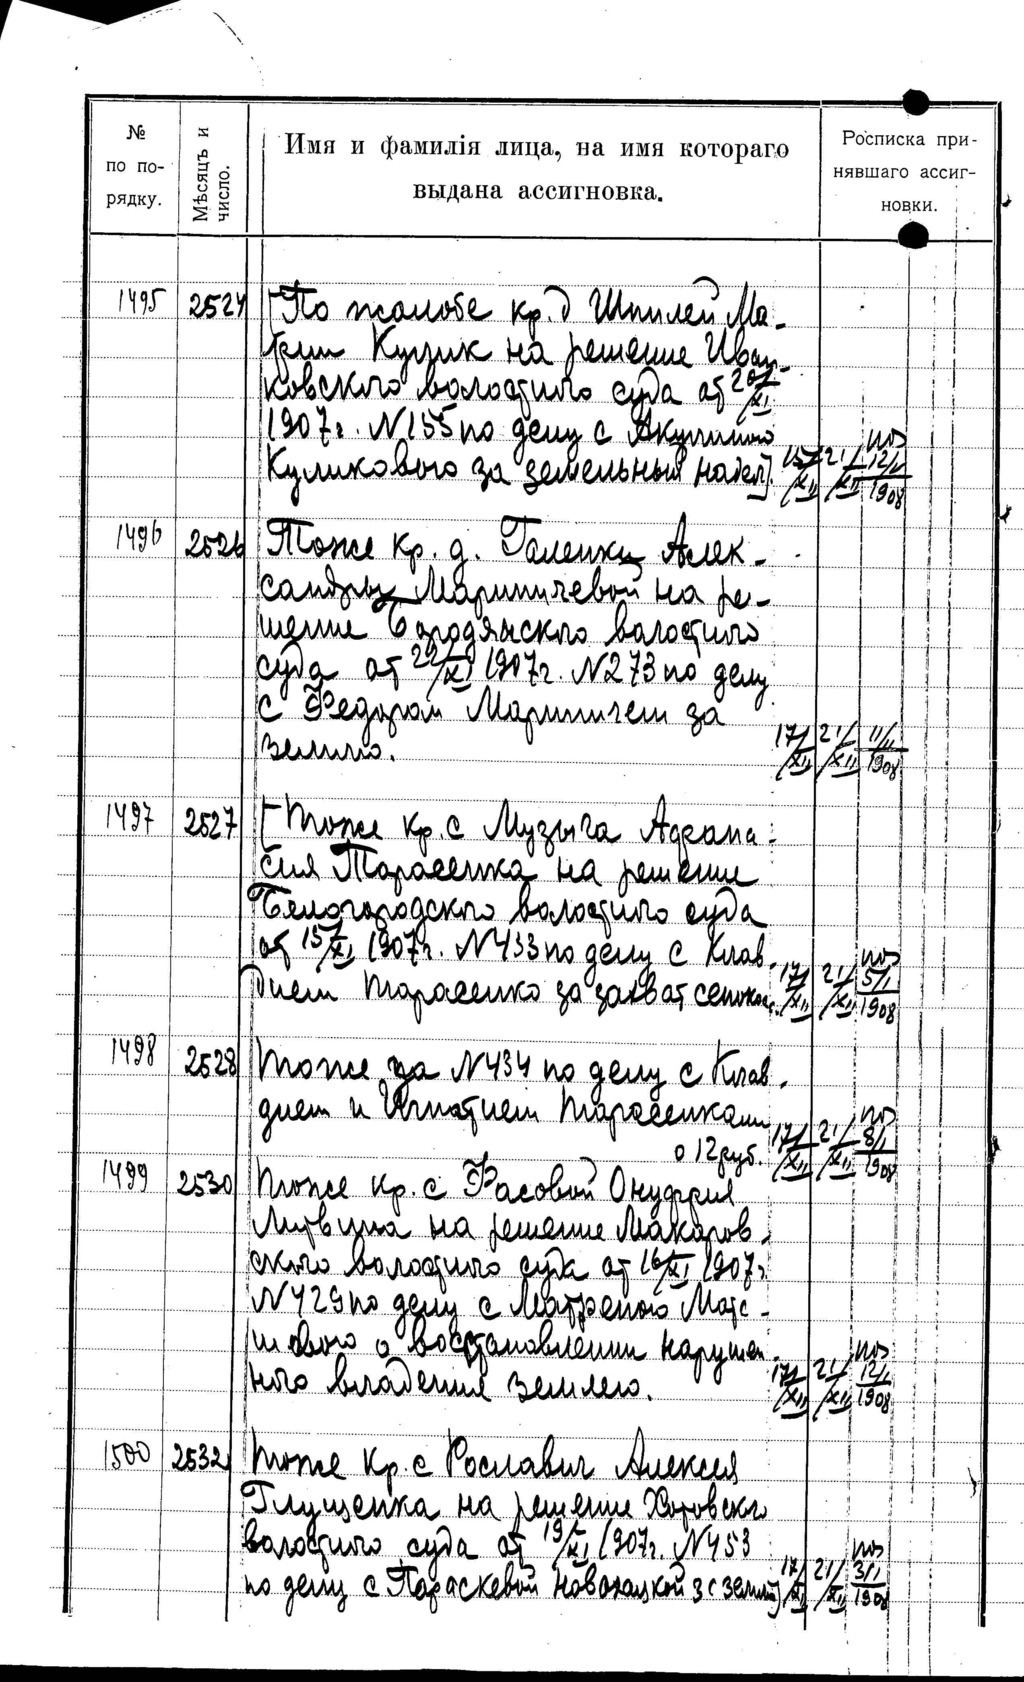 № по порядку.
Мѣсяцъ и число.
Имя и фамилія лица, на имя котораго
выдана ассигновка.
Росписка при-
нявшаго ассиг-
новки.
1495 2524 По жалобе кр. д Шпилей Ма-
рии Кулик на решение Иван-
ковского волостного суда от 20/XI
1907 г. N 155 по делу с Акулиною
Куликовою за земельный надел. 17/XII 21/XII 12/I 1908
1496 2526 Тоже кр. д. Галенки Алек-
сандры Мариничевой на ре-
шение Бородянского волостного
суда от 22/XI 1907 г. N 273 по делу
с Федором Мариничем за
землю. 17/XII 21/XII 11/II 1908
1497 2527 Тоже кр. с Музыча Афана-
сия Тарасенка на решение
Белогородского волостного суда
от 15/XI 1907 г. N 433 по делу с Клав-
дием Тарасенко за захват 17/XII 21/XII 5/I 1908
1498 2528 Тоже на N 434 по делу с Клав-
дием и Игнатием Тарасенками
о 12 руб. 17/XII 21/XII 8/I 1908
1499 2530 Тоже кр. с Фасовой Онуфрия
Литвина на решение Макаров-
ского волостного суда от 16/XI 1907 г
N 429 по делу с Матреною
о восстановлении нарушен-
ного владения землею. 17/XII 21/XII 12/I 1908
1500 2532 Тоже кр. с Рославич Алексея
Глущенка на решение Хотовского
волостного суда от 19/XI 1907 г. N 453
по делу с Параскевой 17/XII 21/XII 3/I 1908